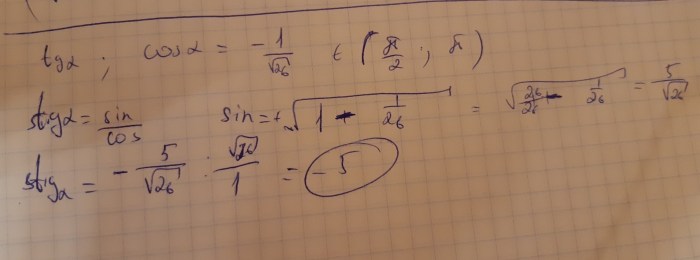 tgα ; cosα = -1/√26 ∈ (π/2 ; π)
tgα = sin/cos sin = +√(1 - 1/26) = √(26/26 - 1/26) = 5/√26
tgα = - 5/√26 : √26/1 = -5